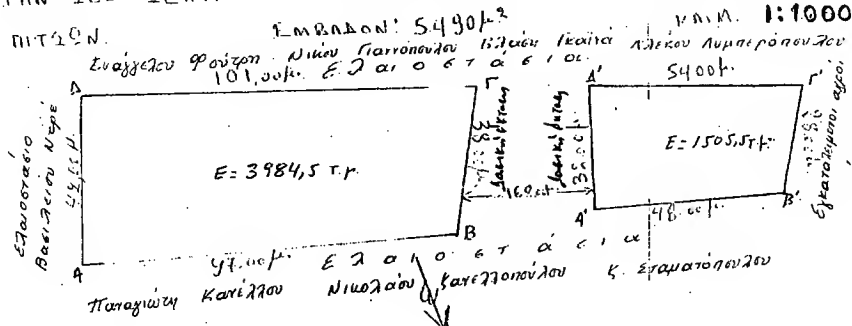 ΠΙΤΩΝ. ΕΜΒΑΔΟΝ: 5.490μ² ΚΛΙΜ. 1:1000
Ευάγγελου Φούτρη Νίκου Γιαννόπουλου Βλάση Αλέκου Λυμπερόπουλου
101,00μ. Ελαιοστάσια 54.00μ.
Δ Γ Δ' Γ'
Ελαιοστάσιο
Βασιλείου
Ε= 3984,5 τ.μ.
Δασική έκταση
Δασική έκταση
Ε= 1505,5 τ.μ.
Εγκατάλειμοι αγροί
Β Α' 48.00μ. Β'
Α 97.00μ. Ελαιοστάσια
Παναγιώτη Κανέλλου Νικολάου Κανελλοπούλου Σταματόπουλου